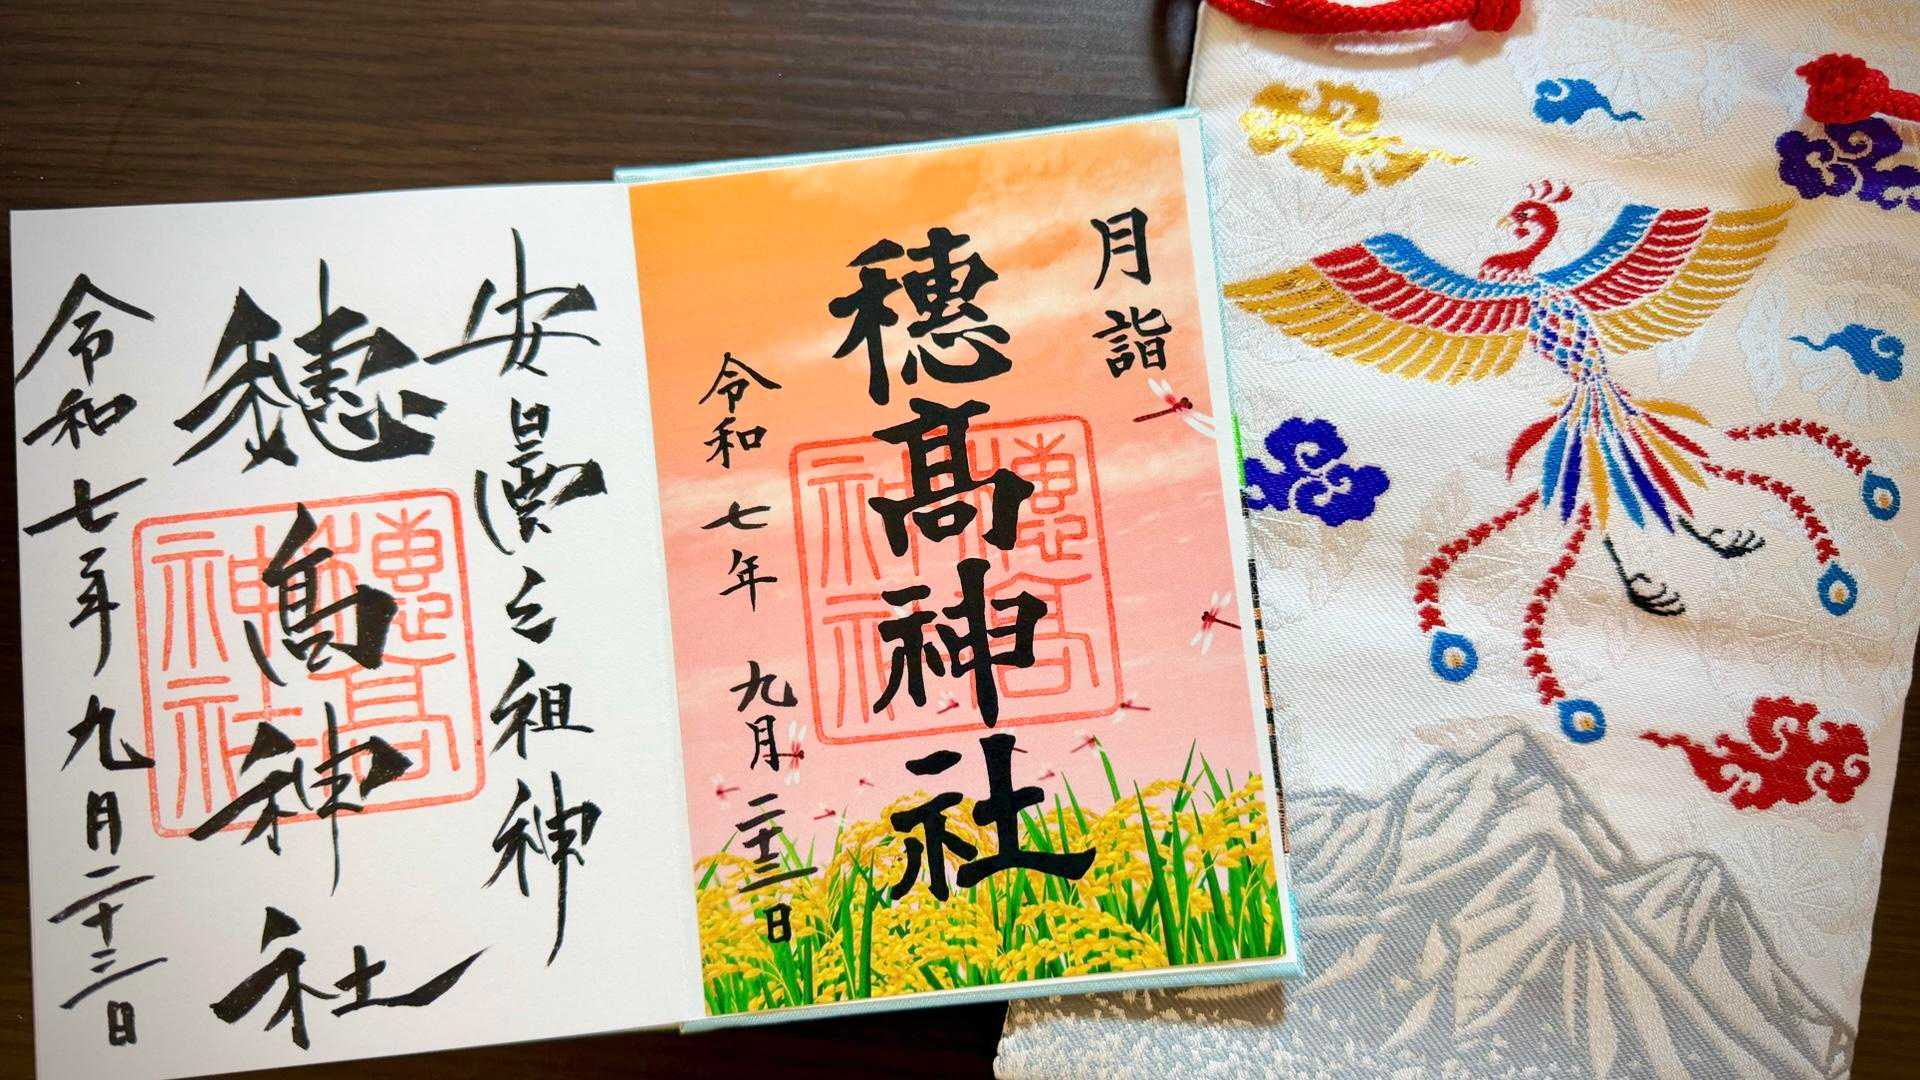 月詣
穗髙神社
穗高神社
令和七年九月二十三日
安曇之祖神
穗髙神社
穗高神社
令和七年九月二十三日